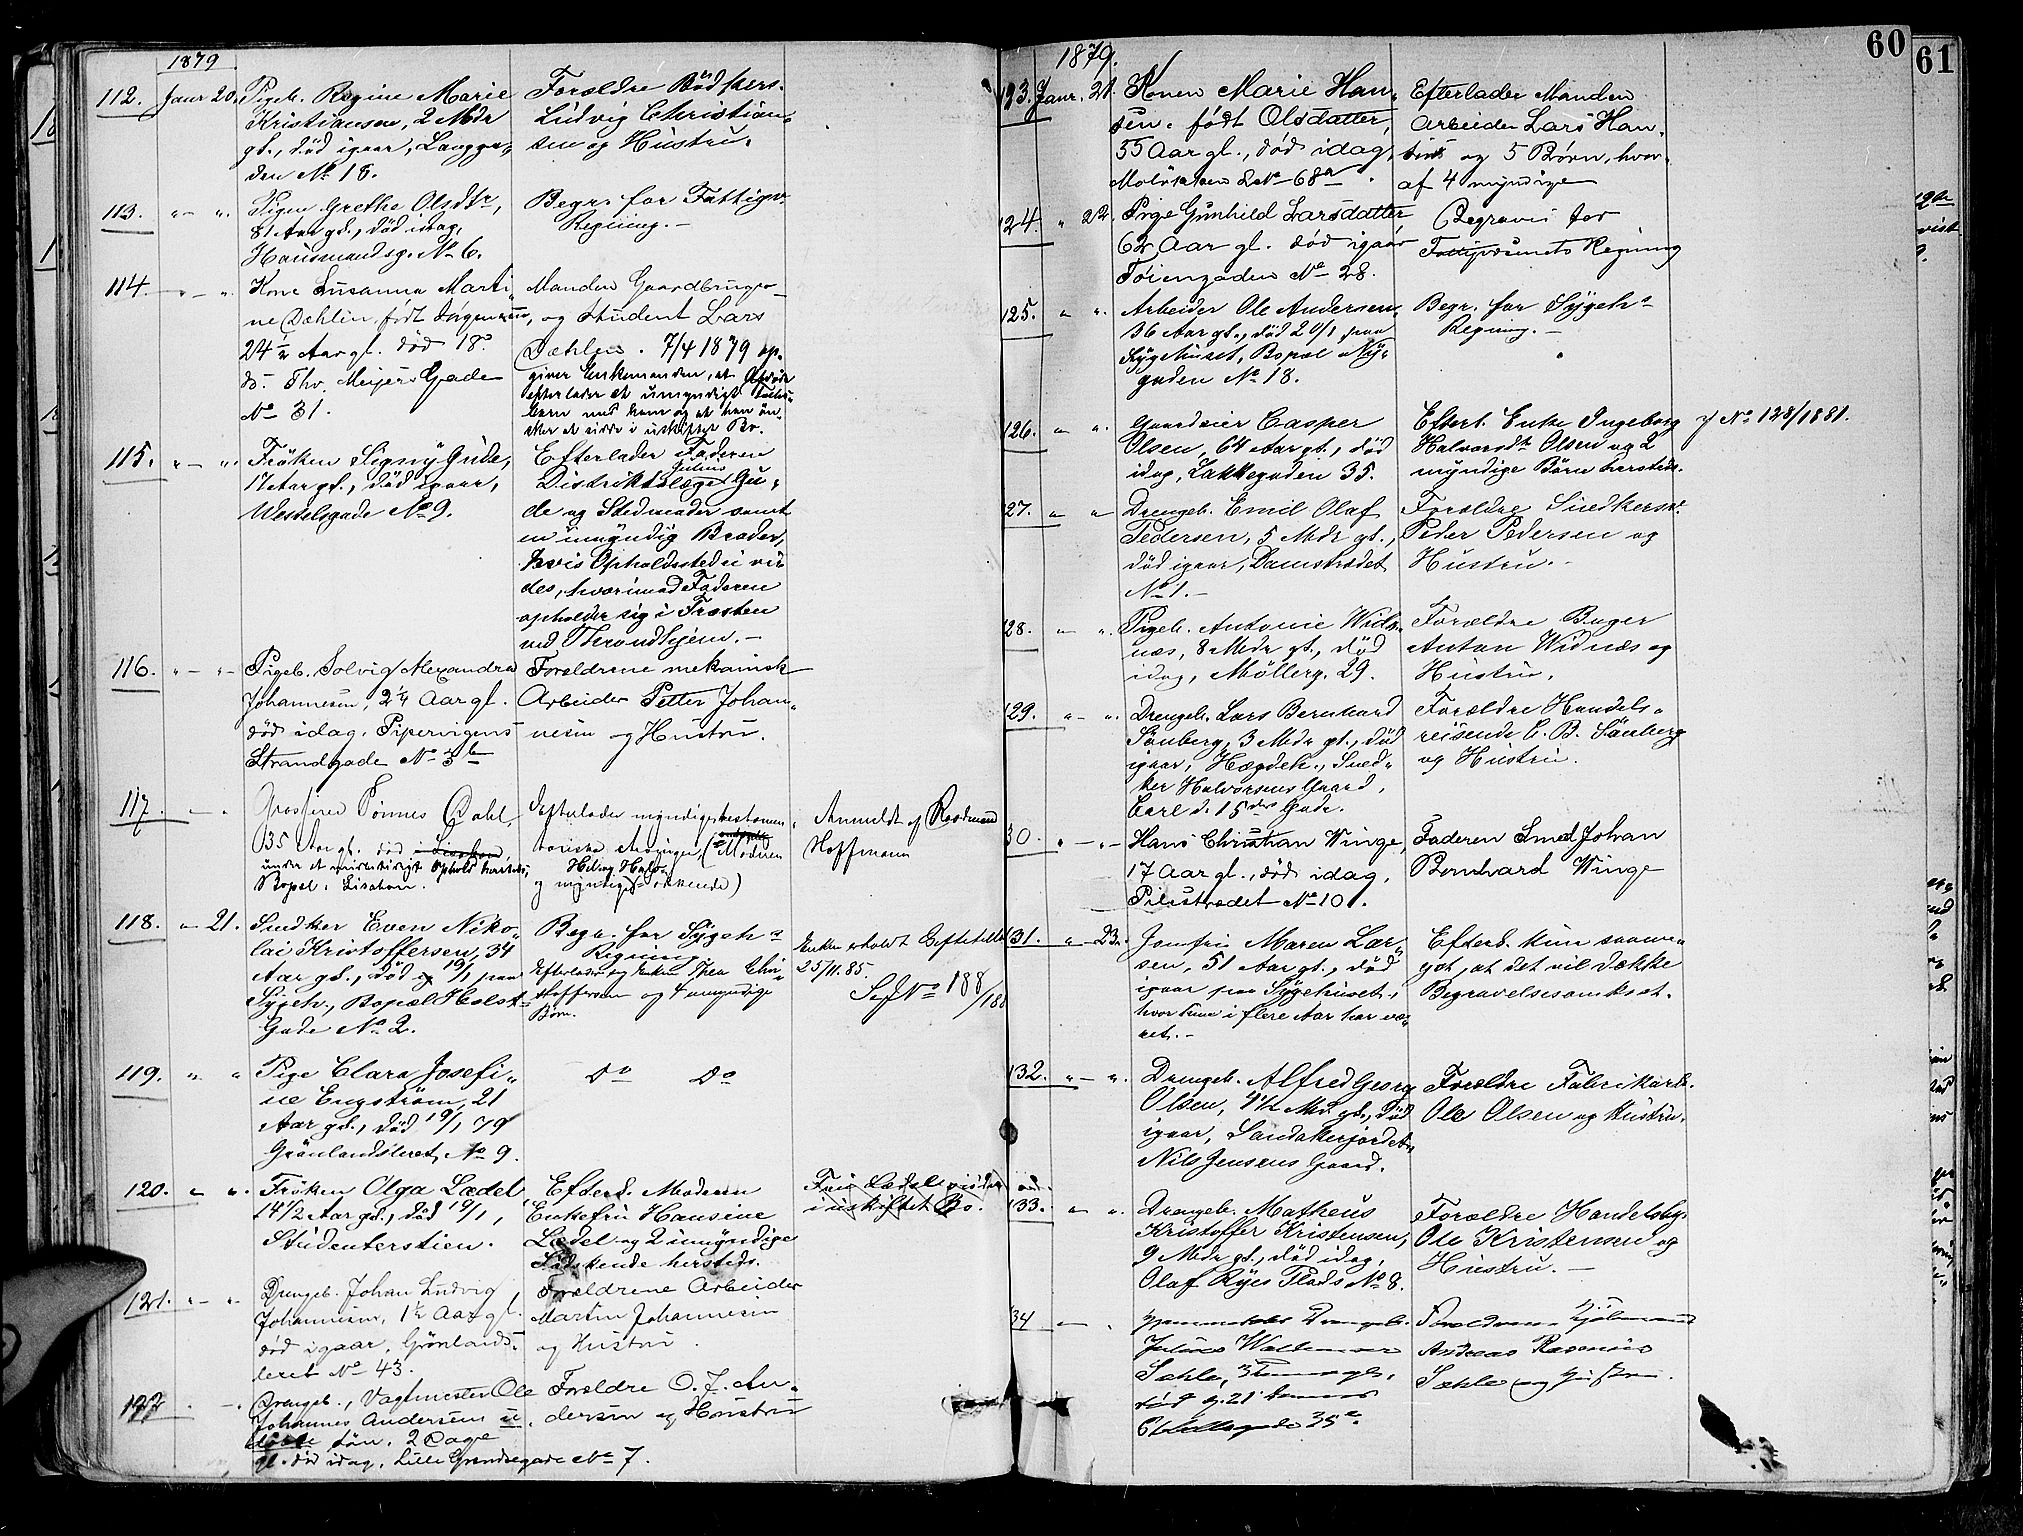 1879
112. Janr 20. Pigeb. Regine Marie
Kristiansen, 2 Mdr
gl., død igaar, Langga,
den No 18.
Forældre Bødkers.
Ludvig Christian,
sen og Hustru.
113. " — " Pigen Grethe Olsdtr,
81 Aar gl., død idag,
Hausmandsg. No 6.
Begr. for Fattigv.
Regning. —
114. " — " Kone Susanna Marti,
ne Dæhlin, født Jørgensen,
24 Aar gl. død 18.
ds. Thv. Meyers Gade
No 31.
Manden Gaardbruger
og Student Lars
Dæhlen. 7/4 1879 op,
giver Enkemanden, at Afdøde
efterlader et umyndigt Fælles,
barn med ham og at han øn,
sker at sidde i uskiftet Bo.
115. " — " Frøken Signy Gude,
17 Aar gl., død igaar,
Wesselsgade No 9.
Efterlader Faderen
Distriktslæge Julius Gu,
de og Stedmoder samt
en umyndig Broder,
hvis Opholdssted ei vi,
des, hvorimod Faderen
opholder sig i Træsten
ved Therondhjem. —
116. " — " Pigeb. Solvig Alexandra
Johannesen, 2 1/4 Aar gl.
død idag. Pipervigens
Strandgade No 3b
Forældrene mekanisk
Arbeider Petter Johan,
nesen og Hustru.
117. — " Grosserer Tønnes Dahl,
35 Aar gl. død i Lissabon
under et midlertidigt Ophold hersteds,
Bopæl: Lisabon.
Efterlader myndige testamen,
tariske Arvinger, (Moderen
og myndige Søskende)
Anmeldt af Raadmand
Hoffmann
118. " — 21. Snedker Even Niko,
lai Kristoffersen, 34
Aar gl., død 19/1 paa
Sygeh., Bopæl Holst
Gade No 2.
Begr. for Sygeh.s
Regning
Efterlader sig Enken Thea Chri,
stoffersen og 4 umyndige
Børn.
Enken erholdt Skifteseddel
25/11. 85.
Sef No 188/188
119. " " Pige Clara Josefi,
ne Engstrøm, 21
Aar gl., død 19/1 79
Grønlandsleret, No 9.
Do Do
120. " " Frøken Olga Lædel,
14 1/2 Aar gl., død 19/1,
Studenterstien.
Efterl. Moderen
Enkefru Hansine
Lædel og 2 umyndige
Sødskende hersteds.
Fru Lædel sidder
i uskiftet Bo.
121. " — " Drengeb. Johan Ludvig
Johannesen, 1 1/2 Aar gl.
død igaar, Grønlands,
leret No 43.
Forældrene Arbeider
Martin Johannesen
og Hustru.
122. — " Drengeb., Vagtmester Ole
Johannes Andersens u,
døbte Søn, 2 Dage
gl. død idag, Lille Grændsegade No 7.
Forældre O. J. An,
dersen og Hustru
60
61
1879.
123. Janr. 21. Konen Marie Han,
sen. født Olsdatter,
55 Aar gl., død idag,
Moløkken No 68a.
Efterlader Manden
Arbeider Lars Han,
sen og 5 Børn, hvor,
af 4 myndige
124. " 22. Pige Gunhild Larsdatter
62 Aar gl. død igaar
Tøiengaden No 28.
Begraves for
Fattigvæsenets Regning
125. " " Arbeider Ole Andersen,
36 Aar gl., død 20/1 paa
Sygehuset, Bopæl Ny,
gaden No 18.
Begr. for Sygeh.s
Regning. —
126. " " Gaardeier Casper
Olsen, 64 Aar gl., død
idag, Lakkegaden 35.
Efterl. Enke Ingeborg
Halvorsdtr Olsen og 2
myndige Børn hersteds.
cf No 128/1881.
127. " " Drengeb. Emil Olaf
Pedersen, 5 Mdr gl.,
død igaar, Damstrædet
No 1. —
Forældre Snedkersv.
Peder Pedersen og
Hustru. —
128. " — " Pigeb. Antonie Wid,
næs, 8 Mdr gl., død
idag, Møllerg. 29.
Forældre Bager
Anton Widnæs og
Hustru.
129. " — " Drengeb. Lars Bernhard
Sønberg, 3 Mdr gl., død
igaar, Hægdeh., Sned,
ker Halvorsens Gaard,
Carl d. 15des Gade.
Forældre Handels,
reisende C. B. Sønberg
og Hustru.
130. " — " Hans Christian Winge,
17 Aar gl., død idag,
Pilestrædet No 101.
Faderen Smed Johan
Bernhard Winge
131. " — 23. Jomfru Maren Lar,
sen, 51 Aar gl., død
igaar paa Sygehuset,
hvor hun i flere Aar har væ,
ret. —
Efterl. kun saame,
get, at det vil dække
Begravelsesomkost.
132. " — " Drengeb. Alfred Georg
Olsen, Mdr gl., død
igaar, Sandakerjordet
Nils Jensens Gaard.
Forældre Fabrikarb.
Ole Olsen og Hustru.
133. " " Drengeb. Matheus
Kristoffer Kristensen,
9 Mdr gl., død idag,
Olaf Ryes Plads No 8.
Forældre Handelsbg.
Ole Kristensen og
Hustru. —
134 — " Drengeb.
Julius Waldemar
Sæhle, 3
død d. 21 dennes
35
Forældrene
Andreas Rasmus
Sæhle og Hustru.